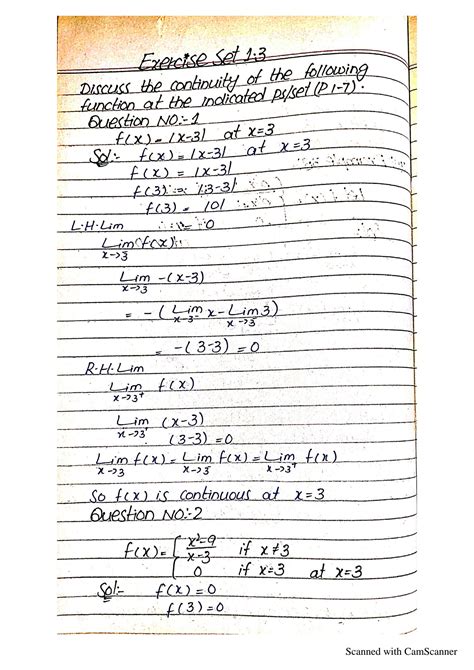 Exercise Set 1.3
Discuss the continuity of the following
function at the indicated Ps/set (P 1-7).
Question NO:-1
f(x) = |x-3| at x=3
Sol:- f(x) = |x-3| at x=3
f(x) = |x-3|
f(3) = |3-3|
f(3) = |0|
L.H.Lim = 0
Lim f(x)
x→3
Lim -(x-3)
x→3
= -(Lim x - Lim 3)
x→3⁻ x→3
= -(3-3) = 0
R.H.Lim
Lim f(x)
x→3⁺
Lim (x-3)
x→3⁺
(3-3) = 0
Lim f(x) = Lim f(x) = Lim f(x)
x→3 x→3⁻ x→3⁺
So f(x) is continuous at x=3
Question NO:-2
f(x) = { x²-9 / x-3 if x≠3
0 if x=3 at x=3
Sol:- f(x) = 0
f(3) = 0
Scanned with CamScanner